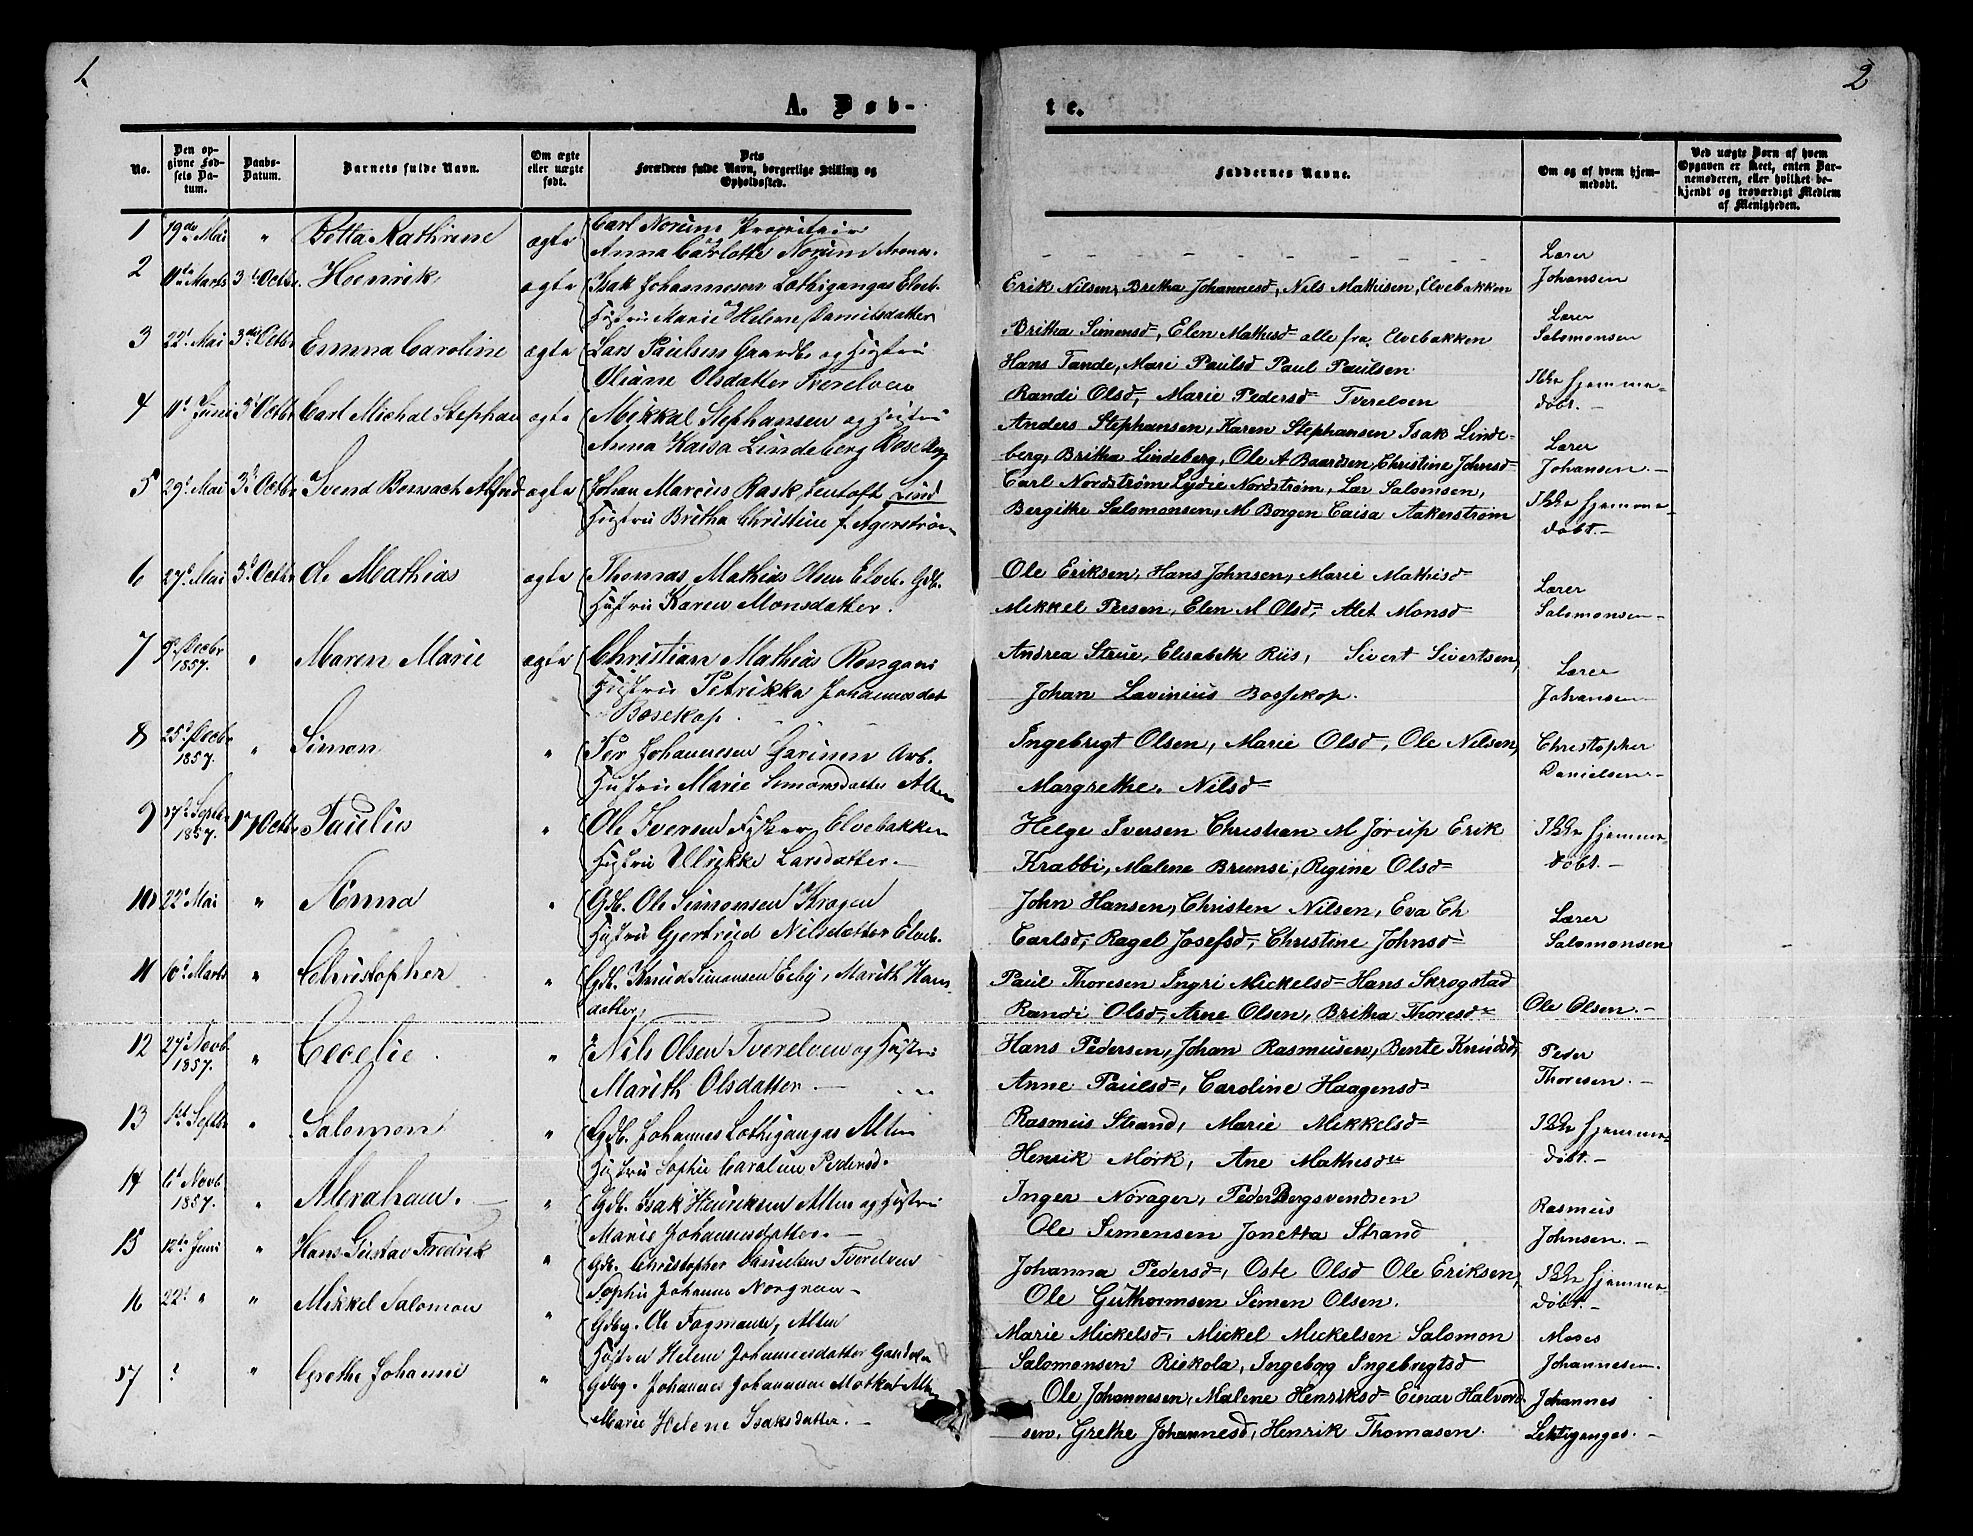 1.
2
A. Døb-
te.
No.
Den op-
givne Fød-
sels Da-
tum.
Daabs-
Datum.
Barnets fulde Navn.
Om ægte
eller uægte
født.
Dets
Forældres fulde Navn, borgerlige Stilling og
Opholdssted.
Faddernes Navne.
Om og af hvem hjem-
medøbt.
Ved uægte Børn af hvem
Opgaven er skeet, enten Bar-
nemoderen, eller hvilket be-
kjendt og troværdigt Medlem
af Menigheden.
1 19de Mai " Betta Kathrine ægte Carl Norum Proprietair
Anna Carlotte Norum
Lærer
Johansen
2 11te Marts 3d Octbr. Henrik ægte Isak Johannesen Lothigangas Elveb.
Hustru Marie Helene Danielsdatter
Erik Nilsen, Britha Johannesd, Nils Mathisen, Elvebakken
Britha Simensd, Elen Mathisd alle fra Elvebakken
Lærer
Salomonsen
3 22d Mai 3die Octbr Emma Caroline ægte Lars Paulsen Gaardb. og Hustru
Oliane Olsdatter Tverelven
Hans Tande, Mari Paulsd Paul Paulsen
Randi Olsd, Marie Pedersd Tverelven
Ikke hjemme-
døbt.
4 11t Juni 3d Octbr Carl Michal Stephan ægte Mikkal Stephansen og Hustru
Anna Kaisa Lindeberg
Anders Stephansen, Karen Stephansen Isak Linde-
berg, Britha Lindeberg, Ole A Baardsen, Christine Johnsd
Lærer
Johansen.
5 29d Mai 3d Octbr Svend Alfred ægte Johan Marcus Rask Lentoft Lind
Hustru Britha Christine f. Agerstrøm
Carl Nordstrøm Lydie Nordstrøm, Lar Salomsen,
Bergithe Salomonsen, M Borgen Caisa Aakerstrøm
Ikke hjemme-
døbt.
6 27d Mai 3d Octbr Ole Mathias ægte Thomas Mathias Olsen Elveb. Gdb.
Hustru Karen Monsdatter.
Ole Eriksen, Hans Johnsen, Marie Mathisd
Mikkel Persen, Elen M Olsd, Alet Monsd
Lærer
Salomonsen
7 Decbr " Maren Marie ægte Christian Mathias
1857. Hustru Petrikka Johannesdat
Bosekop.
Andrea Strue, Elisabeth Riis, Sivert Sivertsen,
Johan Lavinius Bossekop.
Lærer
Johansen
8 25d Decbr " Simon " Per Johannesen Arb.
1857. Hustru Marie Simonsdatter Alten
Ingebrigt Olsen, Marie Olsd, Ole Nilsen,
Margrethe Nilsd
Christopher
Danielsen
9 17d Septbr Octbr Paulus " Ole Iversen Fisker Elvebakken
1857. Hustru Ulrikke Larsdatter.
Helge Iversen Christian M Jørup Erik
Krabbi, Malene Brunsi, Regine Olsd
Ikke hjemme-
døbt.
10 22d Mai " Anna " Gdb. Ole Simonsen Krogen
Hustru Gjertrud Nilsdatter Elveb.
John Hansen, Christen Nilsen, Eva Ch
Carlsd, Ragel Josefsd, Christine Johnsd
Lærer
Salomonsen
11 10d Marts " Christopher " Gdb. Knud Simonsen Eiby, Marith Hans
datter,
Paul Thoresen Ingri Mickelsd Hans Skrogstad
Randi Olsd, Arne Olsen, Britha Thoresd
Ole Olsen.
12 27d Novb " Cecelie. " Nils Olsen Tverelven og Hustru
1857. Marith Olsdatter.
Hans Pedersen, Johan Rasmusen, Bente Knudsd,
Anne Paulsd, Caroline Haagensd
Peder
Thoresen.
13 1st Septbr " Salomon " Gdb. Johannes Lothigangas Alten
Hustru Sophie Caroline Pedersd.
Rasmus Strand, Marie Mikkelsd
Henrik Mörk, Ane Mathisd
Ikke hjemme-
døbt.
14 6t Novb " Abraham. " Gdb. Isak Henriksen Alten og Hustru
1857. Marie Johannesdatter.
Inger Norager, Peder Bergsvendsen
Ole Simensen Jonetta Strand
Rasmus
Johnsen.
15 12te Juni " Hans Gustav Fredrik " Gdb. Christopher Danielsen Tverelven
Sophie Johanne Norgren
Johanna Pedersd, Oste Olsd Ole Eriksen,
Ole Guthormsen Simen Olsen.
Ikke hjemme-
døbt.
16 22d " " Mikkel Salomon " Gdbg. Ole Fogman, Alten
Hustru Helene Johannesdatter
Marie Mickelsd, Mickel Mickelsen Salomon
Salomonsen Riekola, Ingeborg Ingebrigtsd
Moses
Johannesen.
17 ? " Grethe Johanne " Gdbg. Johannes Johannesen Alten
Marie Helene Isaksdatter.
Ole Johannesen, Malene Henriksd Einar Halvord
sen, Grethe Johannesd, Henrik Thomasen.
Johannes
Lektiganges.